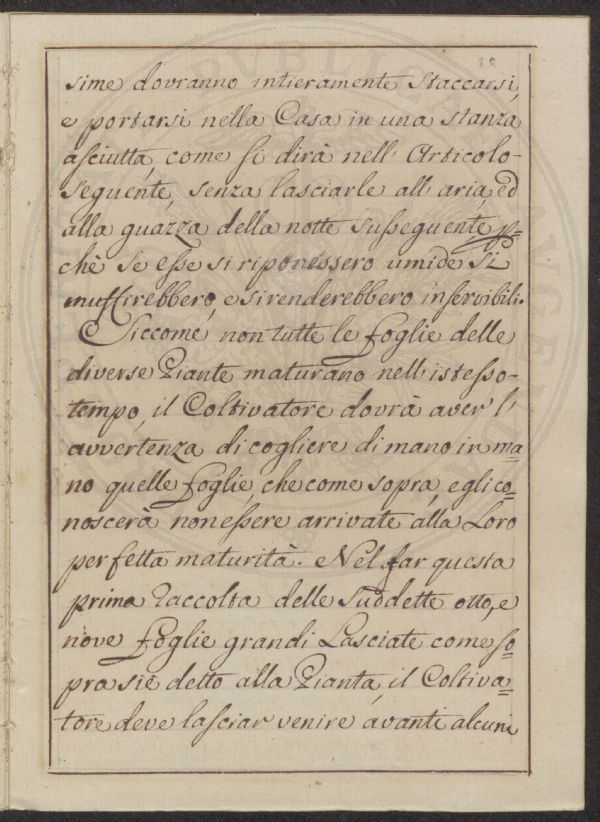 sime dovranno intieramente staccarsi,
e portarsi nella Casa in una stanza
asciutta, come si dirà nell' Articolo-
seguente, senza lasciarle all' aria, ed
alla guazza della notte susseguente, p-
chè se esse si riponessero umide si
muffirebbero, e si renderebbero inservibili.
Siccome non tutte le foglie delle
diverse Piante maturano nell' istesso-
tempo, il Coltivatore dovrà aver l'
avvertenza di cogliere di mano in ma=
no quelle foglie, che come sopra, egli co=
noscerà non essere arrivate alla Loro
perfetta maturità. Nel far questa
prima raccolta delle suddette otto, e
nove foglie grandi Lasciate come so=
pra siè detto alla Pianta, il Coltiva=
tore deve lasciar venire avanti alcuni